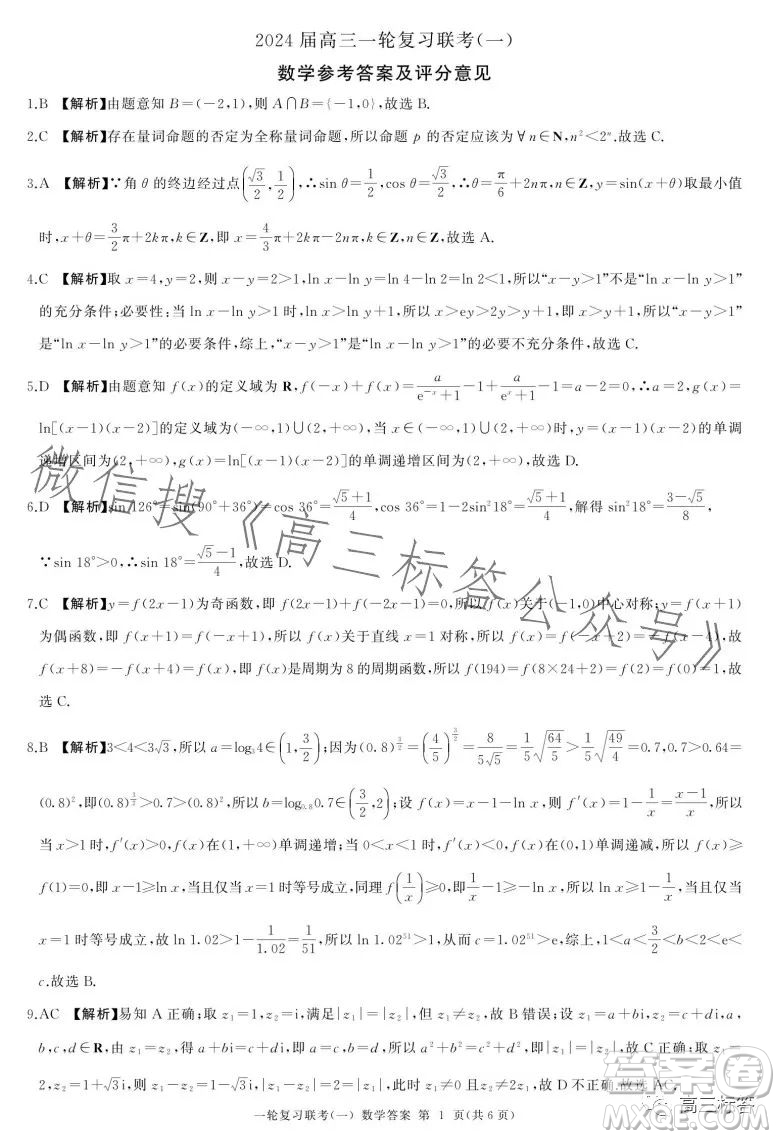 2024 届高三一轮复习联考(一)
数学参考答案及评分意见
1.B 【解析】由题意知 B=(-2,1),则 A∩B={-1,0},故选 B.
2.C 【解析】存在量词命题的否定为全称量词命题,所以命题 p 的否定应该为∀n∈N,n²<2ⁿ.故选 C.
3.A 【解析】∵角 θ 的终边经过点(√3/2,1/2),∴sin θ=1/2,cos θ=√3/2,∴θ=π/6+2nπ,n∈Z,y=sin(x+θ)取最小值
时,x+θ=3/2π+2kπ,k∈Z,即 x=4/3π+2kπ-2nπ,k∈Z,n∈Z,故选 A.
4.C 【解析】取 x=4,y=2,则 x-y=2>1,ln x-ln y=ln 4-ln 2=ln 2<1,所以“x-y>1”不是“ln x-ln y>1”
的充分条件;必要性:当 ln x-ln y>1 时,ln x>ln y+1,所以 x>ey>2y>y+1,即 x>y+1,所以“x-y>1”
是“ln x-ln y>1”的必要条件,综上,“x-y>1”是“ln x-ln y>1”的必要不充分条件,故选 C.
5.D 【解析】由题意知 f(x)的定义域为 R,f(-x)+f(x)=a/(e⁻ˣ+1)-1+a/(eˣ+1)-1=a-2=0,∴a=2,g(x)=
ln[(x-1)(x-2)]的定义域为(-∞,1)∪(2,+∞),当 x∈(-∞,1)∪(2,+∞)时,y=(x-1)(x-2)的单调
递增区间为(2,+∞),g(x)=ln[(x-1)(x-2)]的单调递增区间为(2,+∞),故选 D.
6.D 【解析】sin 126°=sin(90°+36°)=cos 36°=(√5+1)/4,cos 36°=1-2sin²18°=(√5+1)/4,解得 sin²18°=(3-√5)/8,
∵sin 18°>0,∴sin 18°=(√5-1)/4,故选 D.
7.C 【解析】y=f(2x-1)为奇函数,即 f(2x-1)+f(-2x-1)=0,所以 f(x)关于(-1,0)中心对称;y=f(x+1)
为偶函数,即 f(x+1)=f(-x+1),所以 f(x)关于直线 x=1 对称,所以 f(x)=f(-x+2)=-f(x-4),故
f(x+8)=-f(x+4)=f(x),即 f(x)是周期为 8 的周期函数,所以 f(194)=f(8×24+2)=f(2)=f(0)=1,故
选 C.
8.B 【解析】3<4<3√3,所以 a=log₃4∈(1,3/2);因为(0.8)^(3/2)=(4/5)^(3/2)=8/(5√5)=1/5√(64/5)>1/5√(49/4)=0.7,0.7>0.64=
(0.8)²,即(0.8)^(3/2)>0.7>(0.8)²,所以 b=log₀.₈0.7∈(3/2,2);设 f(x)=x-1-ln x,则 f′(x)=1-1/x=(x-1)/x,所以
当 x>1 时,f′(x)>0,f(x)在(1,+∞)单调递增;当 0<x<1 时,f′(x)<0,f(x)在(0,1)单调递减,所以 f(x)≥
f(1)=0,即 x-1≥ln x,当且仅当 x=1 时等号成立,同理 f(1/x)≥0,即 1/x-1≥-ln x,所以 ln x≥1-1/x,当且仅当
x=1 时等号成立,故 ln 1.02>1-1/1.02=1/51,所以 ln 1.02⁵¹>1,从而 c=1.02⁵¹>e,综上,1<a<3/2<b<2<e<
c.故选 B.
9.AC 【解析】易知 A 正确;取 z₁=1,z₂=i,满足|z₁|=|z₂|,但 z₁≠z₂,故 B 错误;设 z₁=a+bi,z₂=c+di,a,
b,c,d∈R,由 z₁=z₂,得 a+bi=c+di,即 a=c,b=d,所以 a²+b²=c²+d²,即|z₁|=|z₂|,故 C 正确;取 z₁=
2,z₂=1+√3i,则 z₁-z₂=1-√3i,|z₁-z₂|=2=|z₁|,此时 z₁≠0 且 z₂≠0,故 D 不正确.故选 AC.
一轮复习联考(一) 数学答案 第 1 页(共 6 页)
微信搜《高三标答公众号》
高三标答
答案圈
MXQE.COM